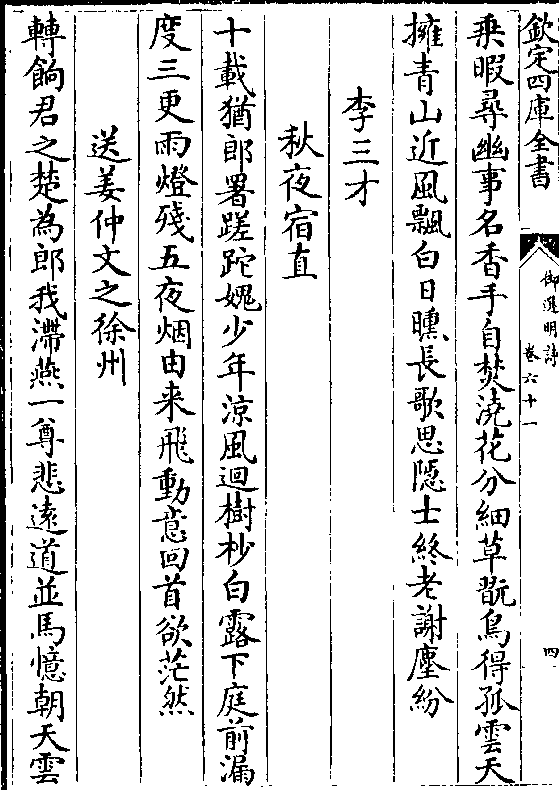 欽定四庫全書
御選明詩
卷六十一
四
乗暇尋幽事名香手自焚澆花分細草翫鳥得孤雲天
擁青山近風飄白日曛長歌思隠士終老謝塵紛
李三才
秋夜宿直
十載猶郎署蹉跎媿少年涼風迴樹杪白露下庭前漏
度三更雨燈殘五夜烟由来飛動意回首欲茫然
送姜仲文之徐州
轉餉君之楚為郎我滯燕一尊悲逺道並馬憶朝天雲